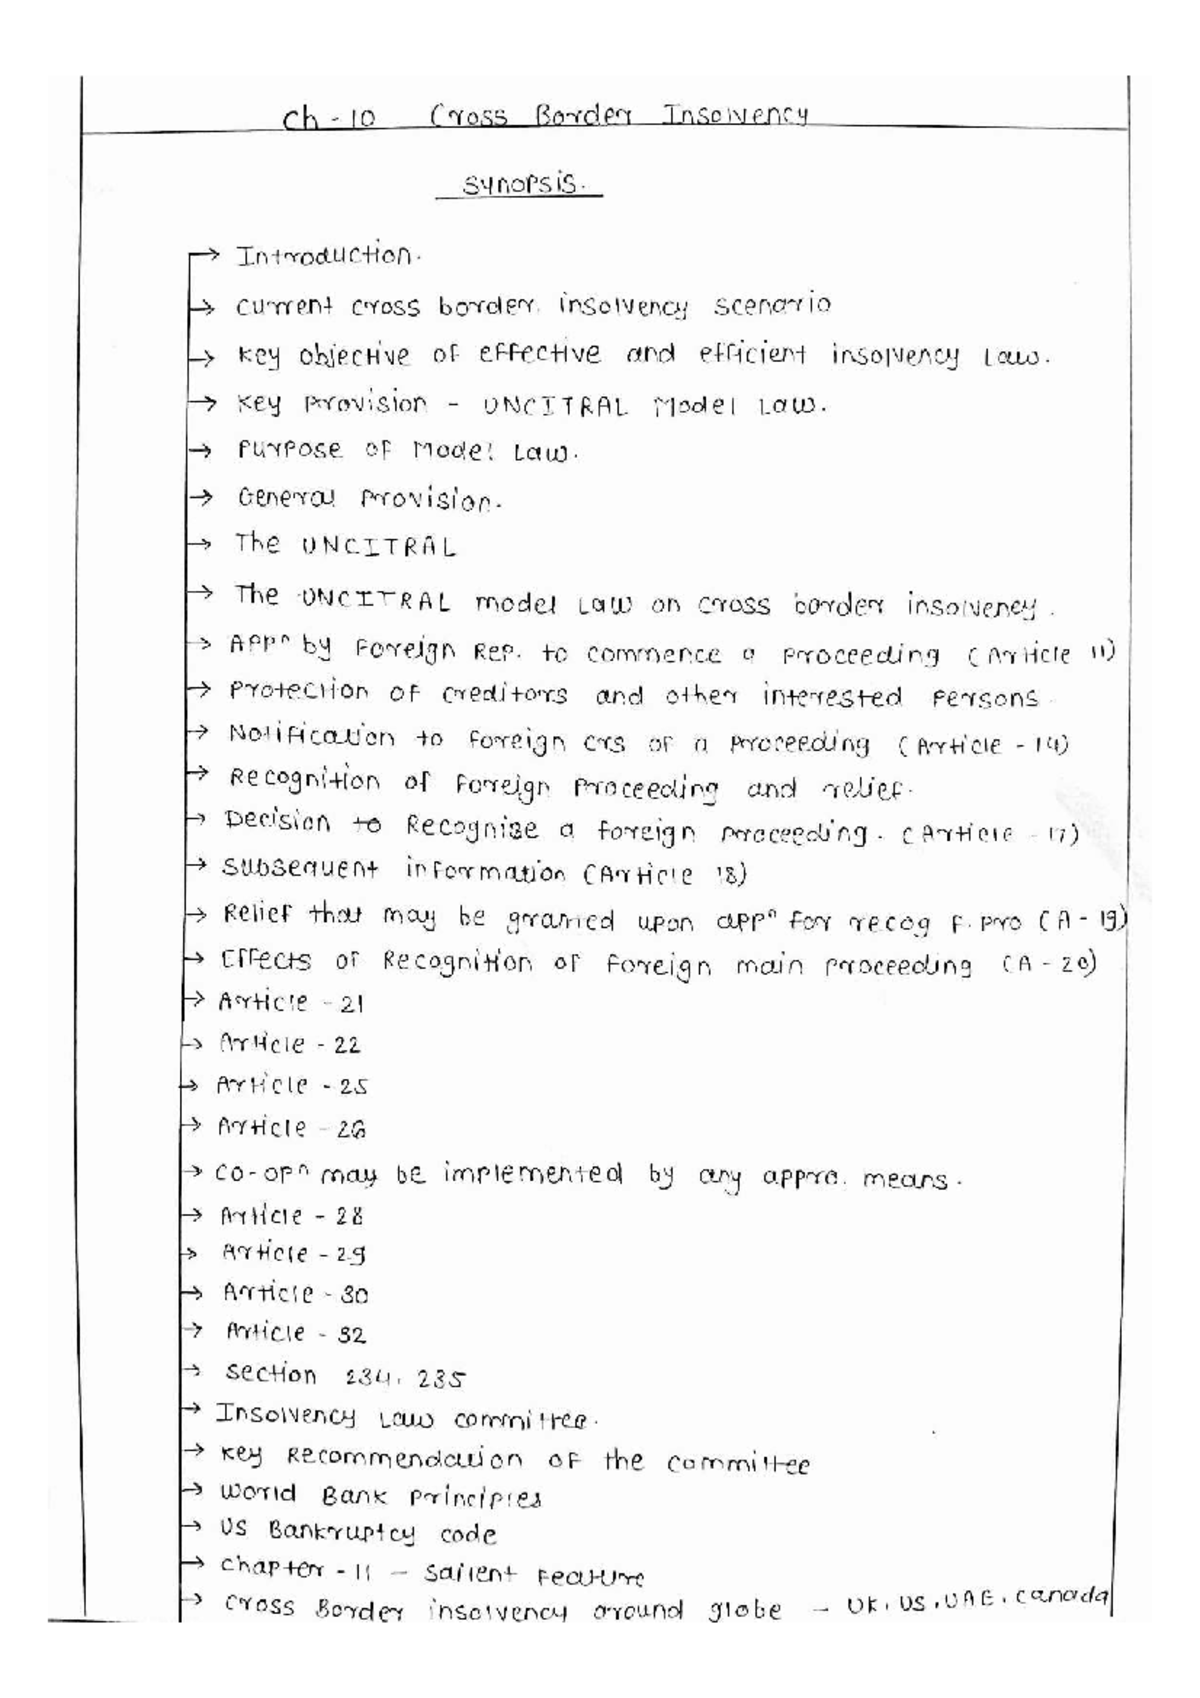 Ch - 10 Cross Border Insolvency
Synopsis.
→ Introduction.
→ Current cross border insolvency scenario
→ Key objective of effective and efficient insolvency Law.
→ Key provision - UNCITRAL Model Law.
→ Purpose of Model Law.
→ General provision.
→ The UNCITRAL
→ The UNCITRAL model Law on cross border insolvency.
→ Appⁿ by Foreign Rep. to commence a proceeding (Article 11)
→ Protection of creditors and other interested persons.
→ Notification to foreign crs of a proceeding (Article - 14)
→ Recognition of Foreign proceeding and relief.
→ Decision to Recognise a foreign proceeding. (Article - 17)
→ Subsequent information (Article 18)
→ Relief that may be granted upon appⁿ for recog F. pro (A - 19)
→ Effects of Recognition of Foreign main proceeding (A - 20)
→ Article - 21
→ Article - 22
→ Article - 25
→ Article - 26
→ Co-opⁿ may be implemented by any appro. means.
→ Article - 28
→ Article - 29
→ Article - 30
→ Article - 32
→ Section 234, 235
→ Insolvency Law committee.
→ Key Recommendation of the committee
→ World Bank principles
→ US Bankruptcy code
→ Chapter - 11 - Salient Feature
→ Cross Border insolvency around globe - UK, US, UAE, Canada